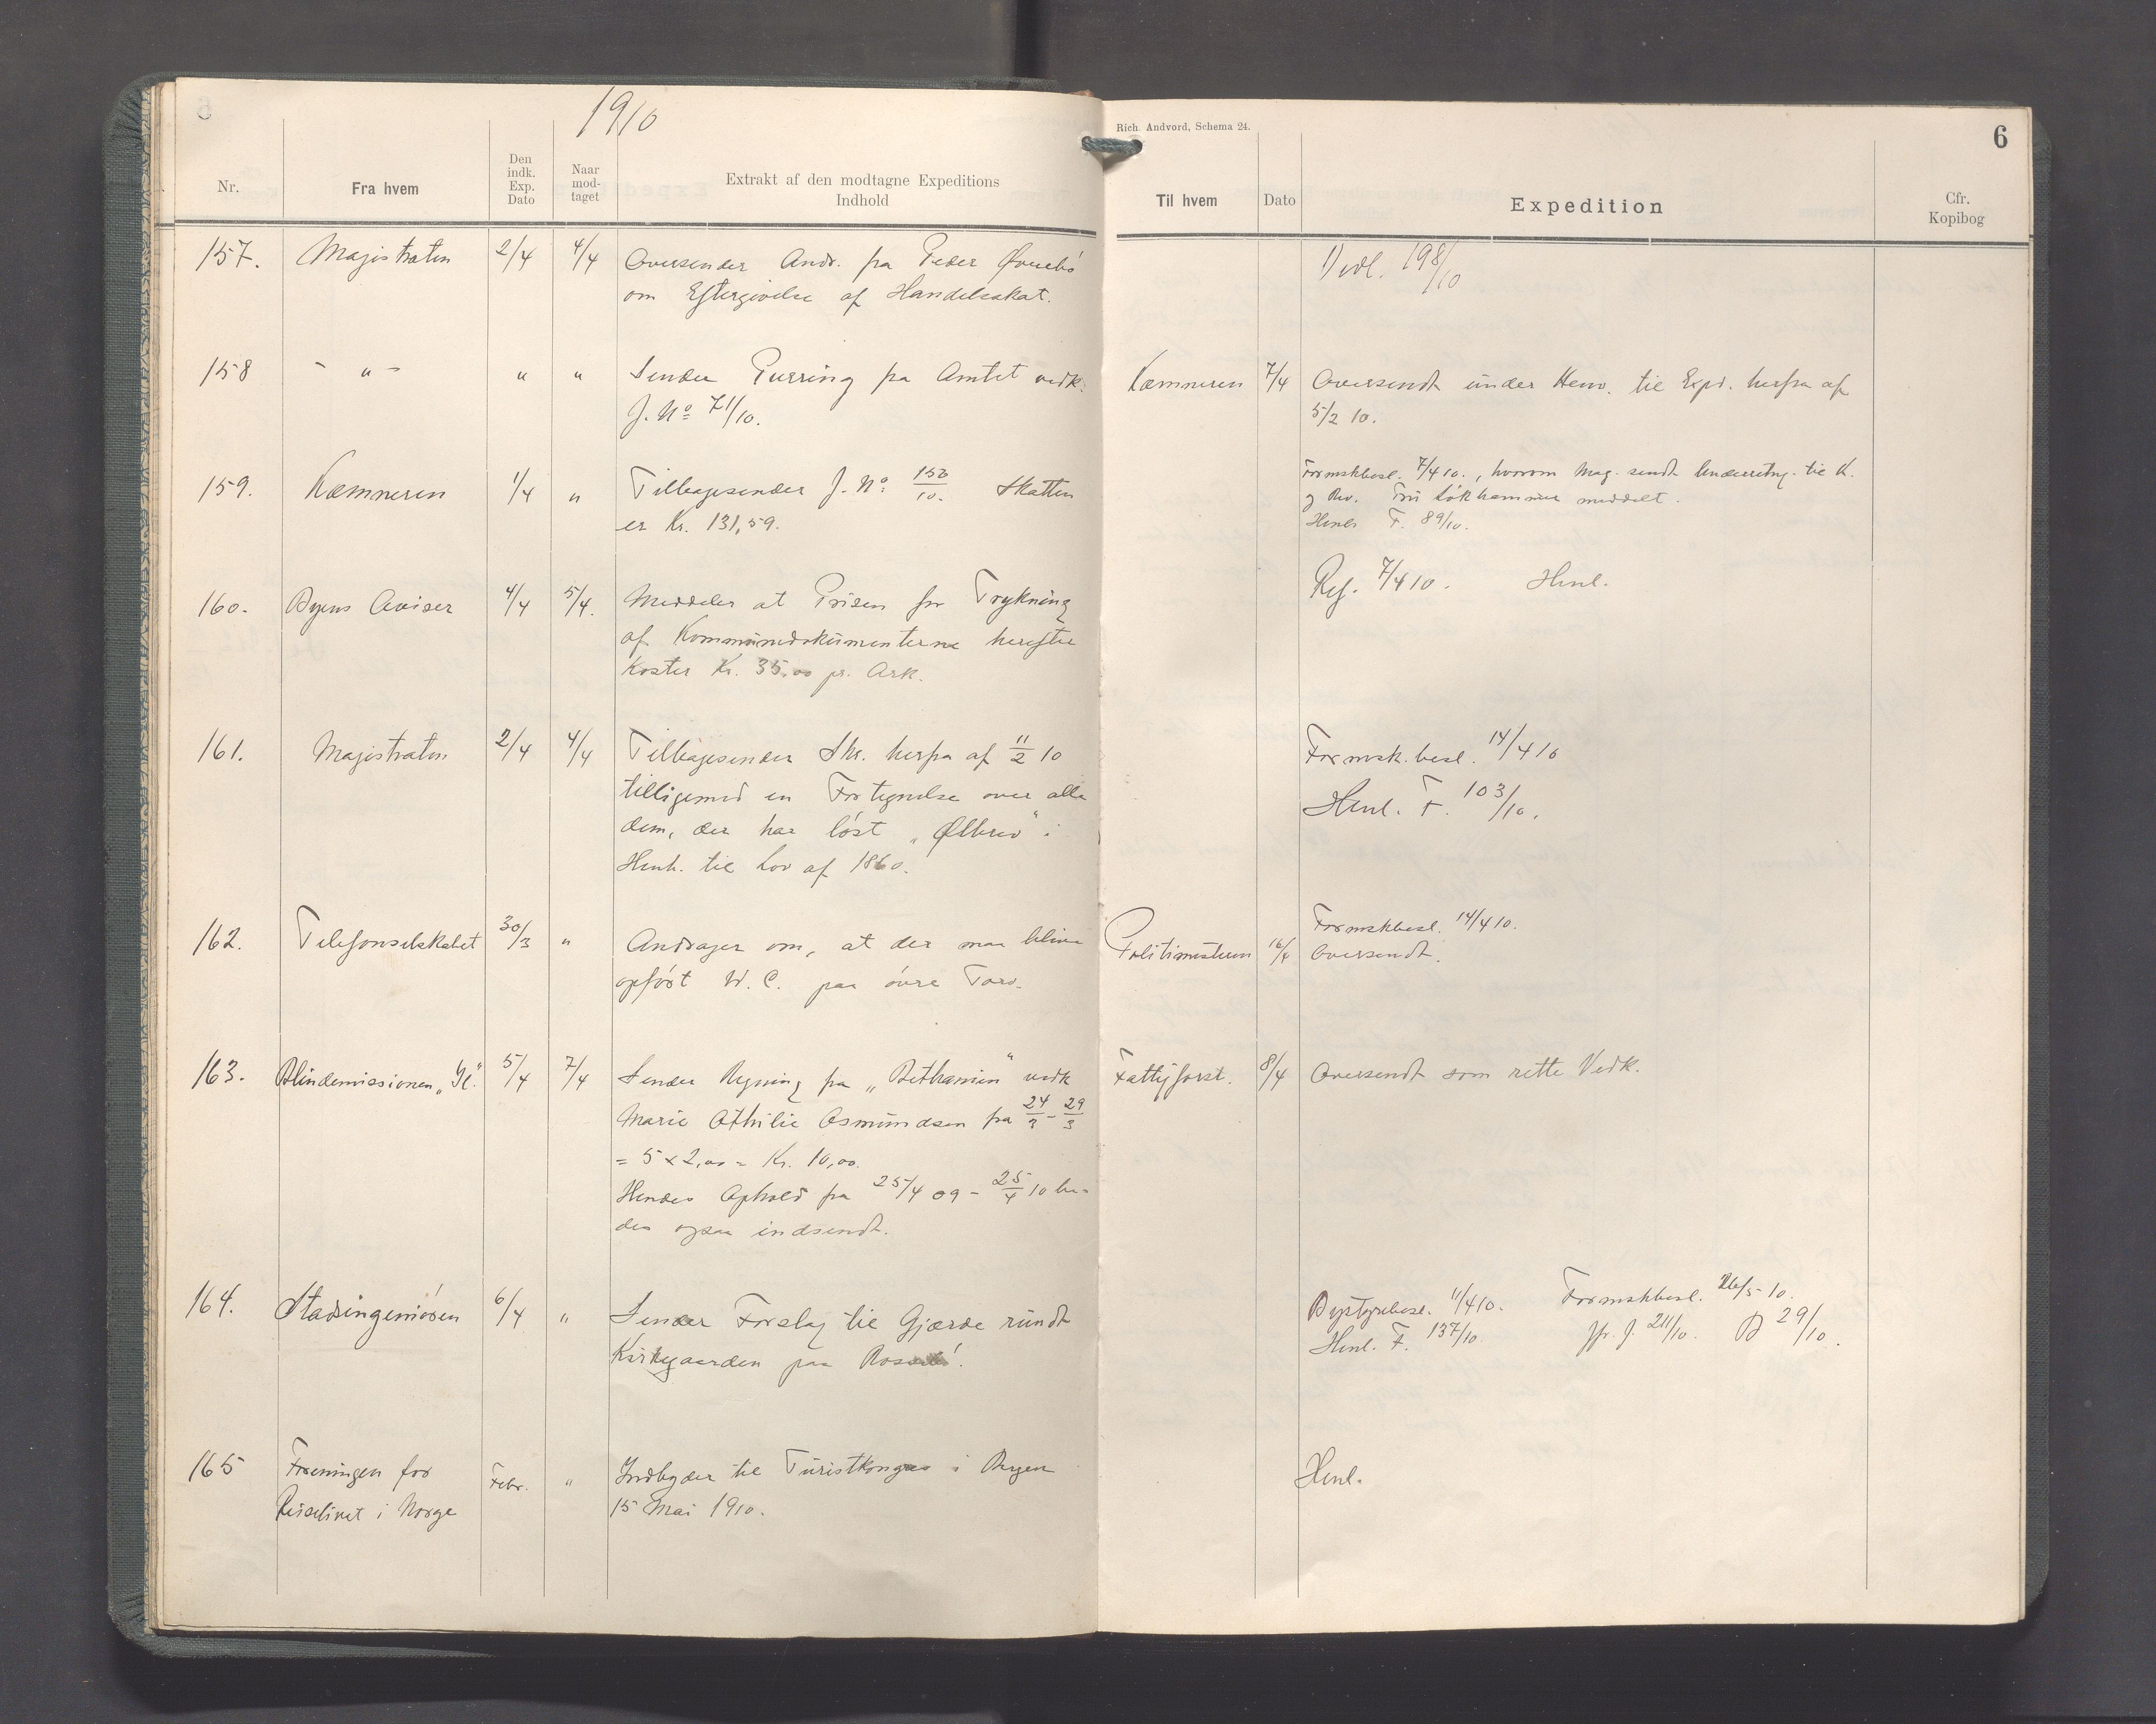 1910
Rich. Andvord, Schema 24.
6
Nr.
Fra hvem
Den indk. Exp. Dato
Naar mod- taget
Extrakt af den modtagne Expeditions Indhold
Til hvem
Dato
Expedition
Cfr. Kopibog
157. Magistraten 2/4 4/4 Oversender Andr. fra Peder
om Eftergivelse af Handelsskat.
Vedl. 198/10
158 - " - " " Sender Purring fra Amtet vedk.
J. No 71/10.
Kæmneren 7/4 Oversendt under Henv. til Expd. herfra af
5/2 10.
159. Kæmneren 1/4 " Tilbagesender J. No 150/10. Skatten
er Kr. 131,59.
Formskbesl. 7/4 10., hvorom Mag. sendt Underretng. til K.
og Rev. Fru Løkhammer meddelt.
Henl. F. 89/10.
160. Byens Aviser 4/4 5/4. Meddeler at Prisen for Trykning
af Kommunedokumenterne herefter
koster Kr. 35.00 pr. Ark.
Ref. 7/4 10. Henl.
161. Magistraten 2/4 4/4 Tilbagesender Skr. herfra af 11/2 10
tilligemed en Fortegnelse over alle
dem, der har løst „Ølbrev" i
Henh. til Lov af 1860.
Formsk.besl. 14/4 10
Henl. F. 103/10.
162. Telefonselskabet 30/3 " Andrager om, at der maa blive
opført W. C. paa øvre Torv.
Formskbesl. 14/4 10.
Politimesteren 16/4 Oversendt.
163. Blindemissionen „Il." 5/4 7/4 Sender Regning fra „Bethanien" vedk
Marie Othilie Osmundsen fra 24/3 - 29/3
= 5 x 2,00 = Kr. 10,00.
Hendes Ophold fra 25/4 09 - 25/4 10 be-
des ogsaa indsendt.
Fattigforst. 8/4 Oversendt som rette Vedk.
164. Stadsingeniøren 6/4 " Sender Forslag til Gjærde rundt
Kirkegaarden paa
Bystyrebesl. 11/4 10. Formskbesl. 26/5 10.
Henl. F. 137/10. Jfr. J. 211/10. B 29/10.
165 Foreningen for
Reiselivet i Norge
Febr. " Indbyder til Turistkongres i Bergen
15 Mai 1910.
Henl.